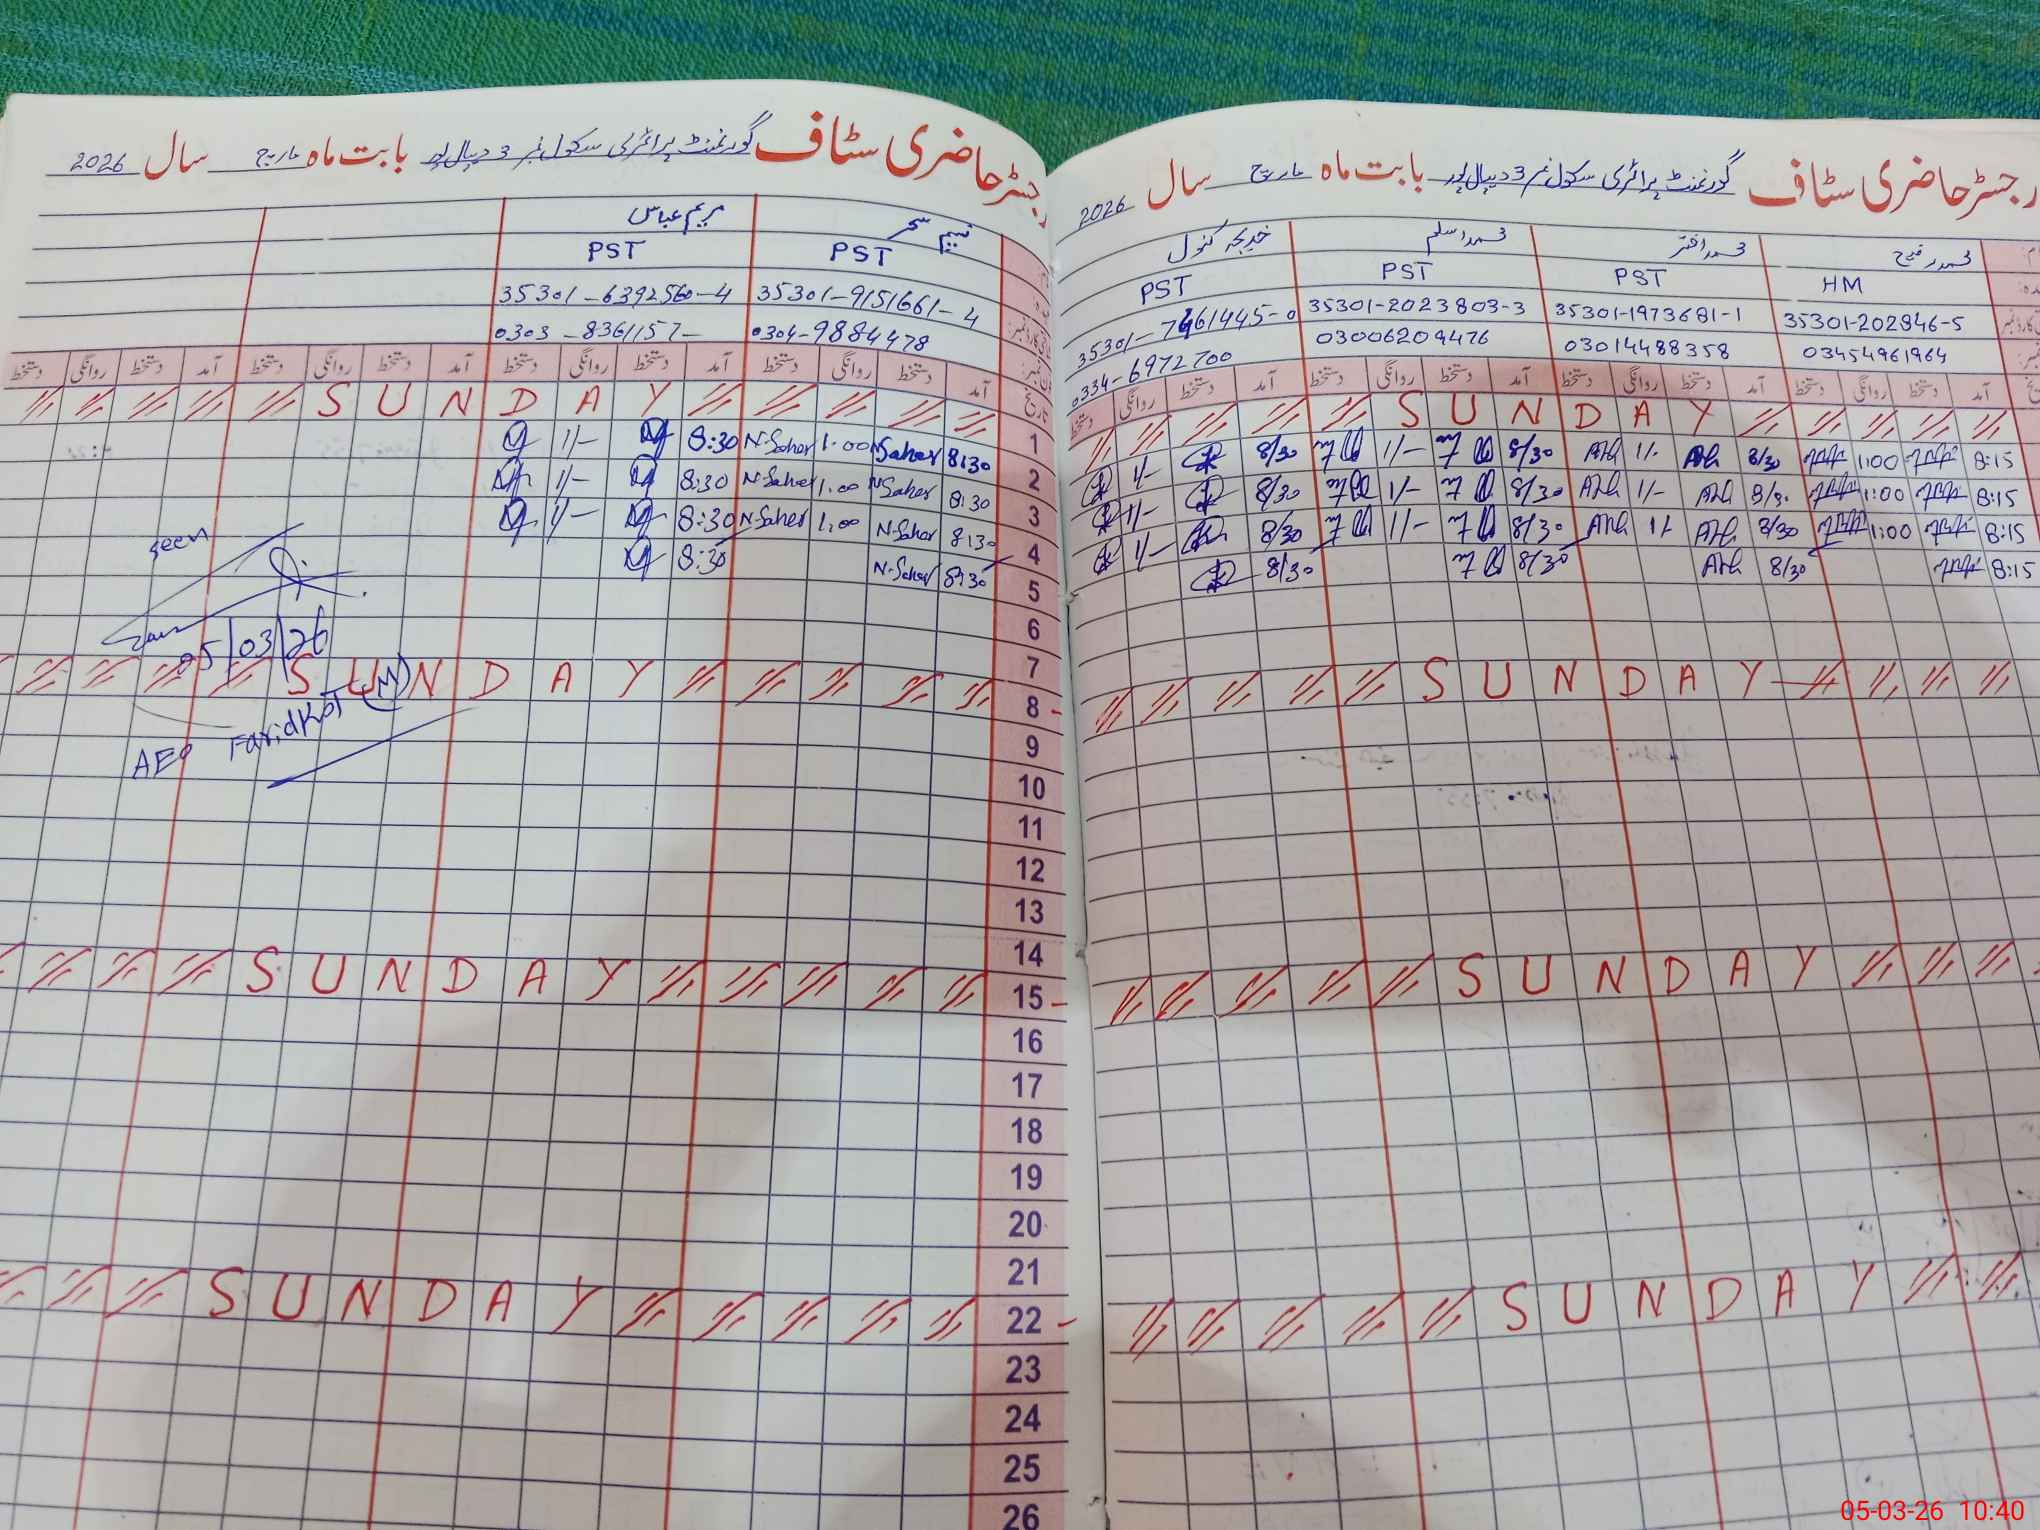 رجسٹر حاضری سٹاف گورنمنٹ پرائمری سکول نمبر 3 دیپالپور بابت ماہ مارچ سال 2026
محمد رفیع
محمد اختر
محمد اسلم
خدیجہ کنول
HM
PST
PST
PST
35301-202846-5
35301-1973681-1
35301-2023803-3
35301-7461445-0
03454961964
03014488358
03006209476
0334-6972700
تاریخ آمد دستخط روانگی دستخط آمد دستخط روانگی دستخط آمد دستخط روانگی دستخط آمد دستخط روانگی دستخط
SUNDAY
8:15 1:00 8/30 1/- 8/30 1/- 8/30 1/-
8:15 1:00 1/- 8/30 1/- 8/30 1/-
8:15 1:00 8/30 1/- 8/30 1/- 8/30 1/-
8:15 8/30 8/30 8/30
SUNDAY
SUNDAY
SUNDAY
رجسٹر حاضری سٹاف گورنمنٹ پرائمری سکول نمبر 3 دیپالپور بابت ماہ مارچ سال 2026
نسیم سحر
مریم عباس
PST
PST
35301-9151661-4
35301-6392560-4
0304-9884478
0303-8361157-
تاریخ آمد دستخط روانگی دستخط آمد دستخط روانگی دستخط آمد دستخط روانگی دستخط آمد دستخط روانگی دستخط
1 SUNDAY
2 8:30 N-Saher 1.00 N-Saher 8:30 1/-
3 8:30 N-Saher 1.00 N-Saher 8:30 1/-
4 8:30 N-Saher 1.00 N-Saher 8:30 1/-
5 8:30 N-Saher 8:30
6
7
8 SUNDAY
9
10
11
12
13
14
15 SUNDAY
16
17
18
19
20
21
22 SUNDAY
23
24
25
26
seen
05/03/26
AEO FaridKot (M)
05-03-26 10:40